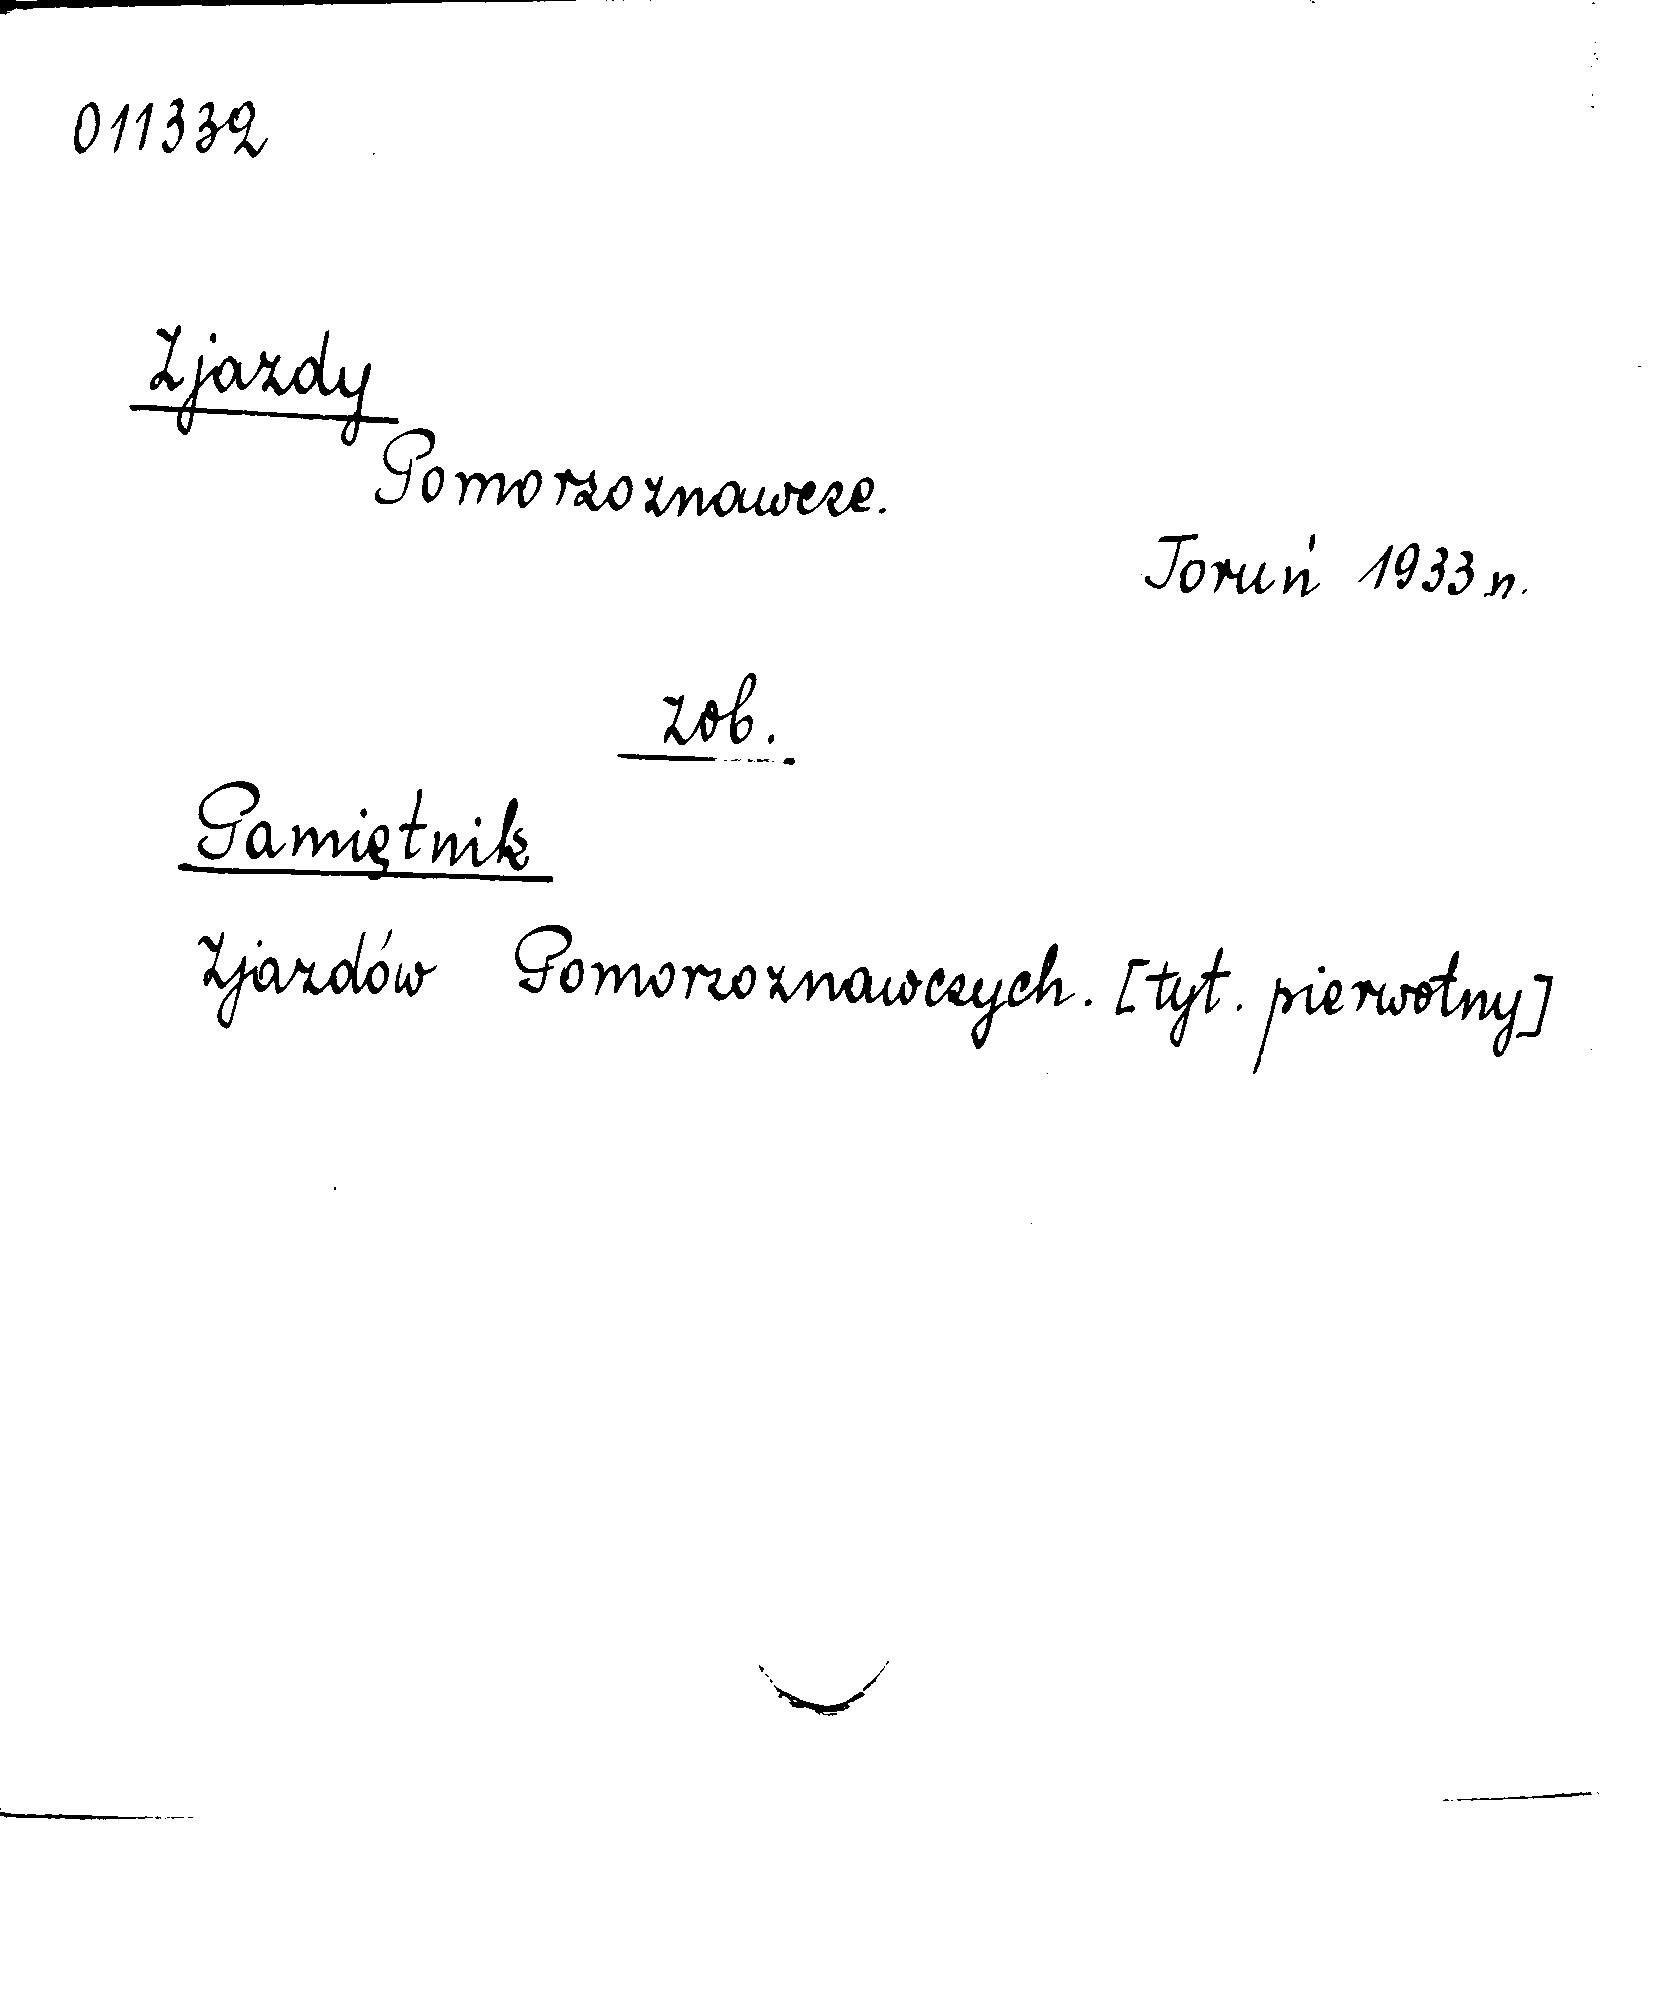 011332
Zjazdy
Pomorzoznawcze.
Toruń 1933 n.
zob.
Pamiętnik
Zjazdów Pomorzoznawczych. [tyt. pierwotny]